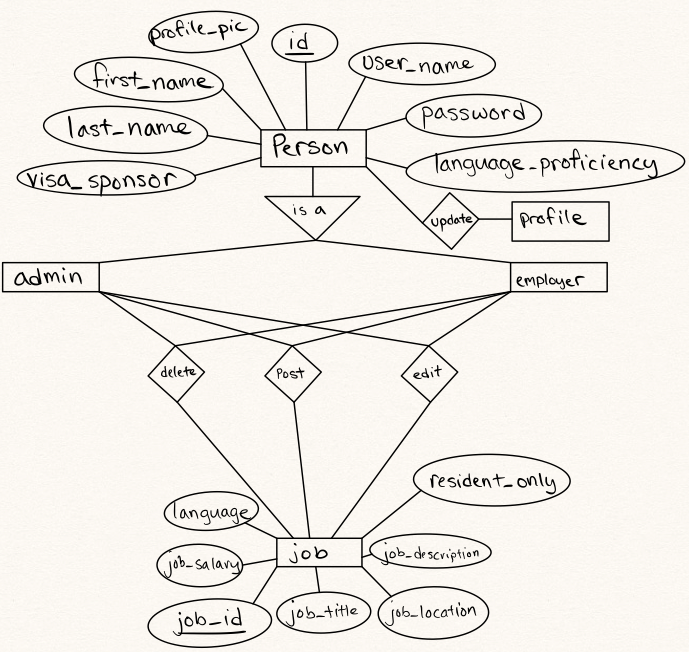 profile_pic
id
user_name
first_name
password
last_name
Person
language_proficiency
visa_sponsor
is a
update
profile
admin
employer
delete
Post
edit
resident_only
language
job
job_description
job_salary
job_id
job_title
job_location